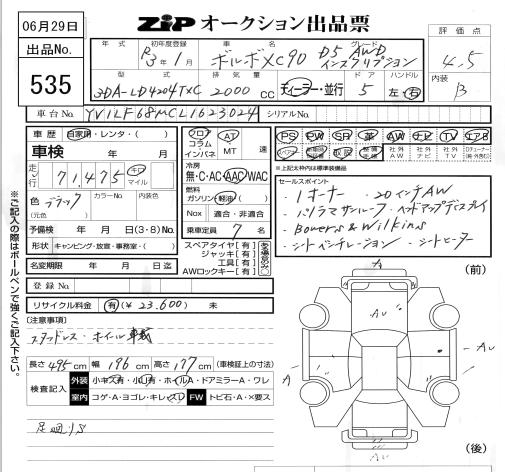 06月29日
ZIP オークション出品票
出品No.
535
年式
初年度登録
車名
グレード
評価点
R3年1月
ボルボXC90
D5 AWD
インスクリプション
4.5
型式
排気量
ドア
ハンドル
内装
3DA-LD4204TXC
2000 CC
ディーラー・並行
5
左・右
B
車台No.
YV1LF68MCL1623024
シリアルNo.
車歴
自家用・レンタ・( )
フロア
コラム
インパネ
AT
MT
速
PS
PW
SR
革
AW
ナビ
TV
エアB
車検
年 月
スペアキー
取説
社外AW
社外ナビ
社外TV
走行
71,475
キロ
マイル
冷房
無・C・AC・AAC・WAC
※上記太枠内は標準装備品
色
ブラック
(元色)
カラーNo.
内装色
燃料
ガソリン・軽油・( )
Nox
適合・非適合
セールスポイント
・1オーナー ・20インチAW
・パノラマサンルーフ・ヘッドアップディスプレイ
・Bowers & Wilkins
・シートベンチレーション ・シートヒーター
予備検
年 月 日(3・8)No.
乗車定員
7 名
形状
キャンピング・放送・事務室・( )
スペアタイヤ【有】
ジャッキ【有】
工具【有】
AWロックキー【有】
名変期限
年 月 日迄
登録No.
リサイクル料金
有(¥ 23,600)
未
[注意事項]
スタッドレス・ホイール車載
長さ 495cm 幅 196cm 高さ 177cm (車検証上の寸法)
検査記入
外装
小キズ有・小凹有・ホイルA・ドアミラーA・ワレ
室内
コゲ・A・ヨゴレ・キレ・スレ
FW
トビ石・A・×要ス
足廻りS
(前)
A
AU
A
AU
AU
(後)
※ご記入の際はボールペンで強くご記入下さい。